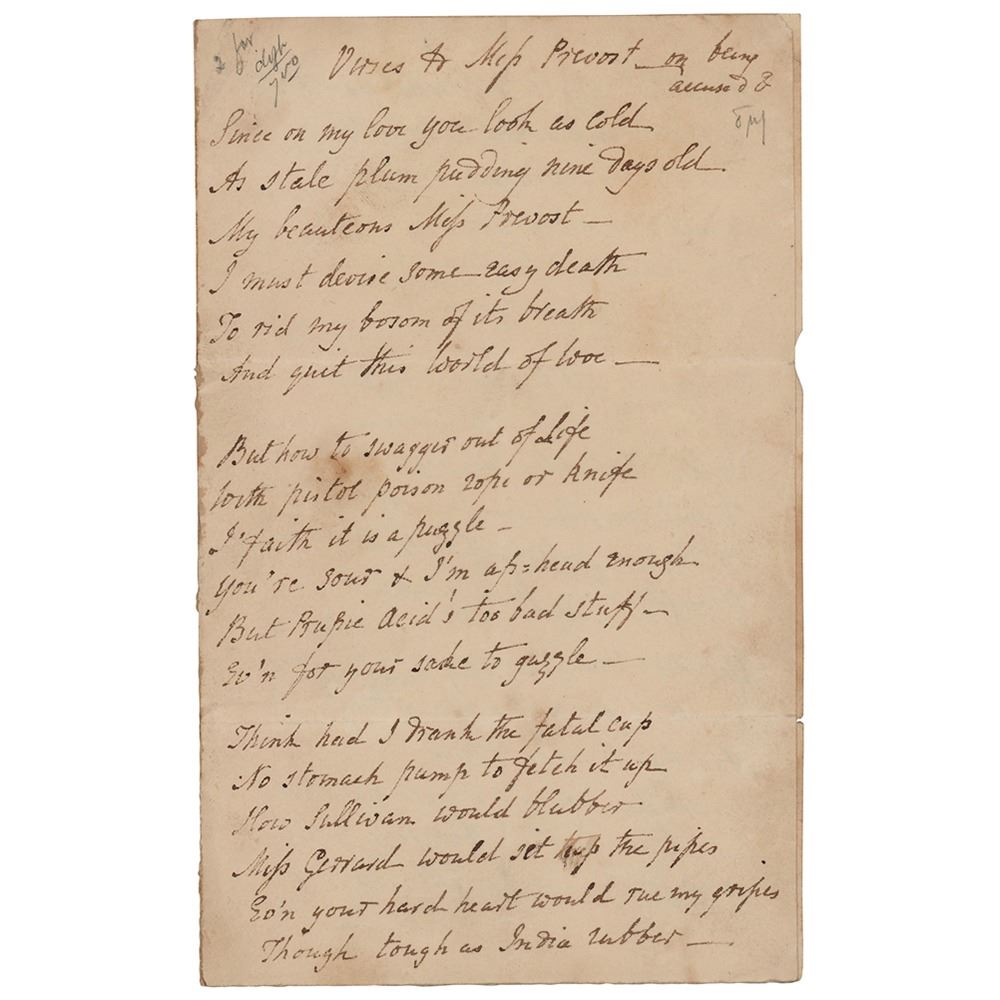 Verses to Miss Prevost — on being
accused &
Since on my love you look as cold
As stale plum pudding nine days old
My beauteous Miss Prevost —
I must devise some easy death
To rid my bosom of its breath
And quit this world of woe —
But how to swagger out of life
With pistol poison rope or knife
I'faith it is a puzzle —
You're sour & I'm ass=head enough
But Prussic Acid's too bad stuff —
Ev'n for your sake to guzzle —
Think had I drank the fatal cup
No stomach pump to fetch it up
How Sullivan would blubber
Miss Gerrard would set up the pipes
Ev'n your hard heart would rue my gripes
Though tough as India rubber —